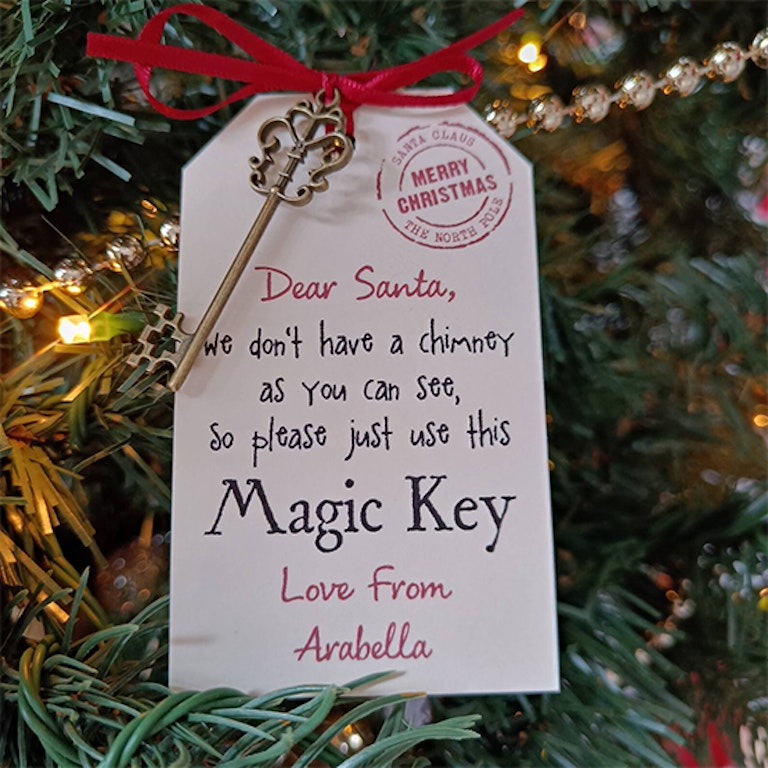 SANTA CLAUS
MERRY
CHRISTMAS
THE NORTH POLE
Dear Santa,
we don't have a chimney
as you can see,
so please just use this
Magic Key
Love From
Arabella